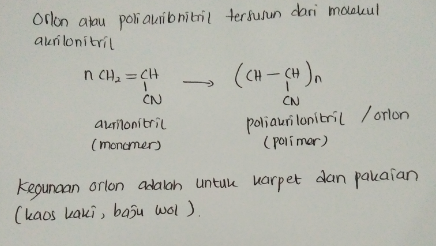 Orlon atau poliakribnitril tersusun dari molekul
akrilonitril
n CH₂ = CH → (CH – CH)n
CN CN
akrilonitril poliakrilonitril / orlon
(monomer) (polimer)
Kegunaan orlon adalah untuk karpet dan pakaian
(kaos kaki, baju wol).